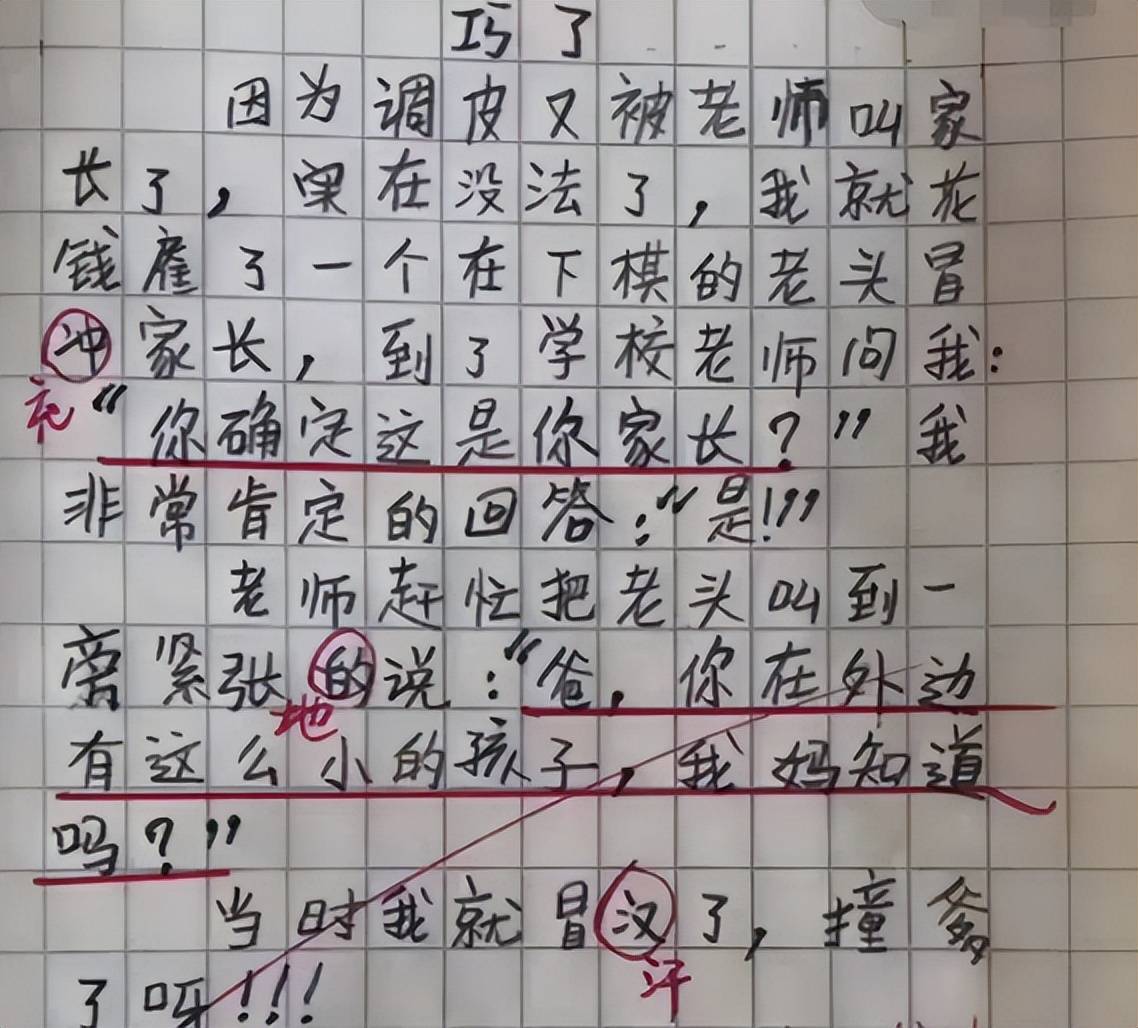 巧了
因为调皮又被老师叫家
长了，实在没法了，我就花
钱雇了一个在下棋的老头冒
冲家长，到了学校老师问我：
充
“你确定这是你家长？”我
非常肯定的回答：“是！”
老师赶忙把老头叫到一
旁紧张的说：“爸，你在外边
地
有这么小的孩子，我妈知道
吗？”
当时我就冒汉了，撞爹
汗
了呀！！！